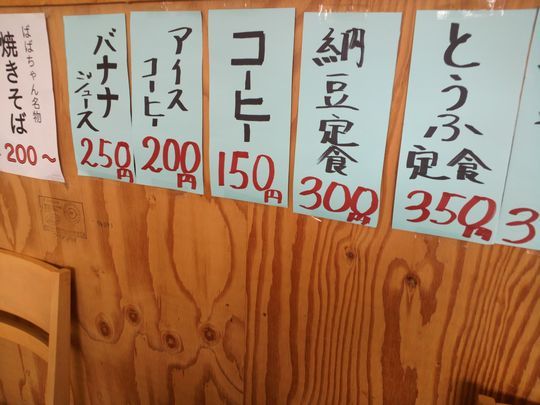 ばばちゃん名物
焼きそば
200～
バナナ
ジュース
250円
アイス
コーヒー
200円
コーヒー
150円
納豆定食
300円
とうふ
定食
350円
3